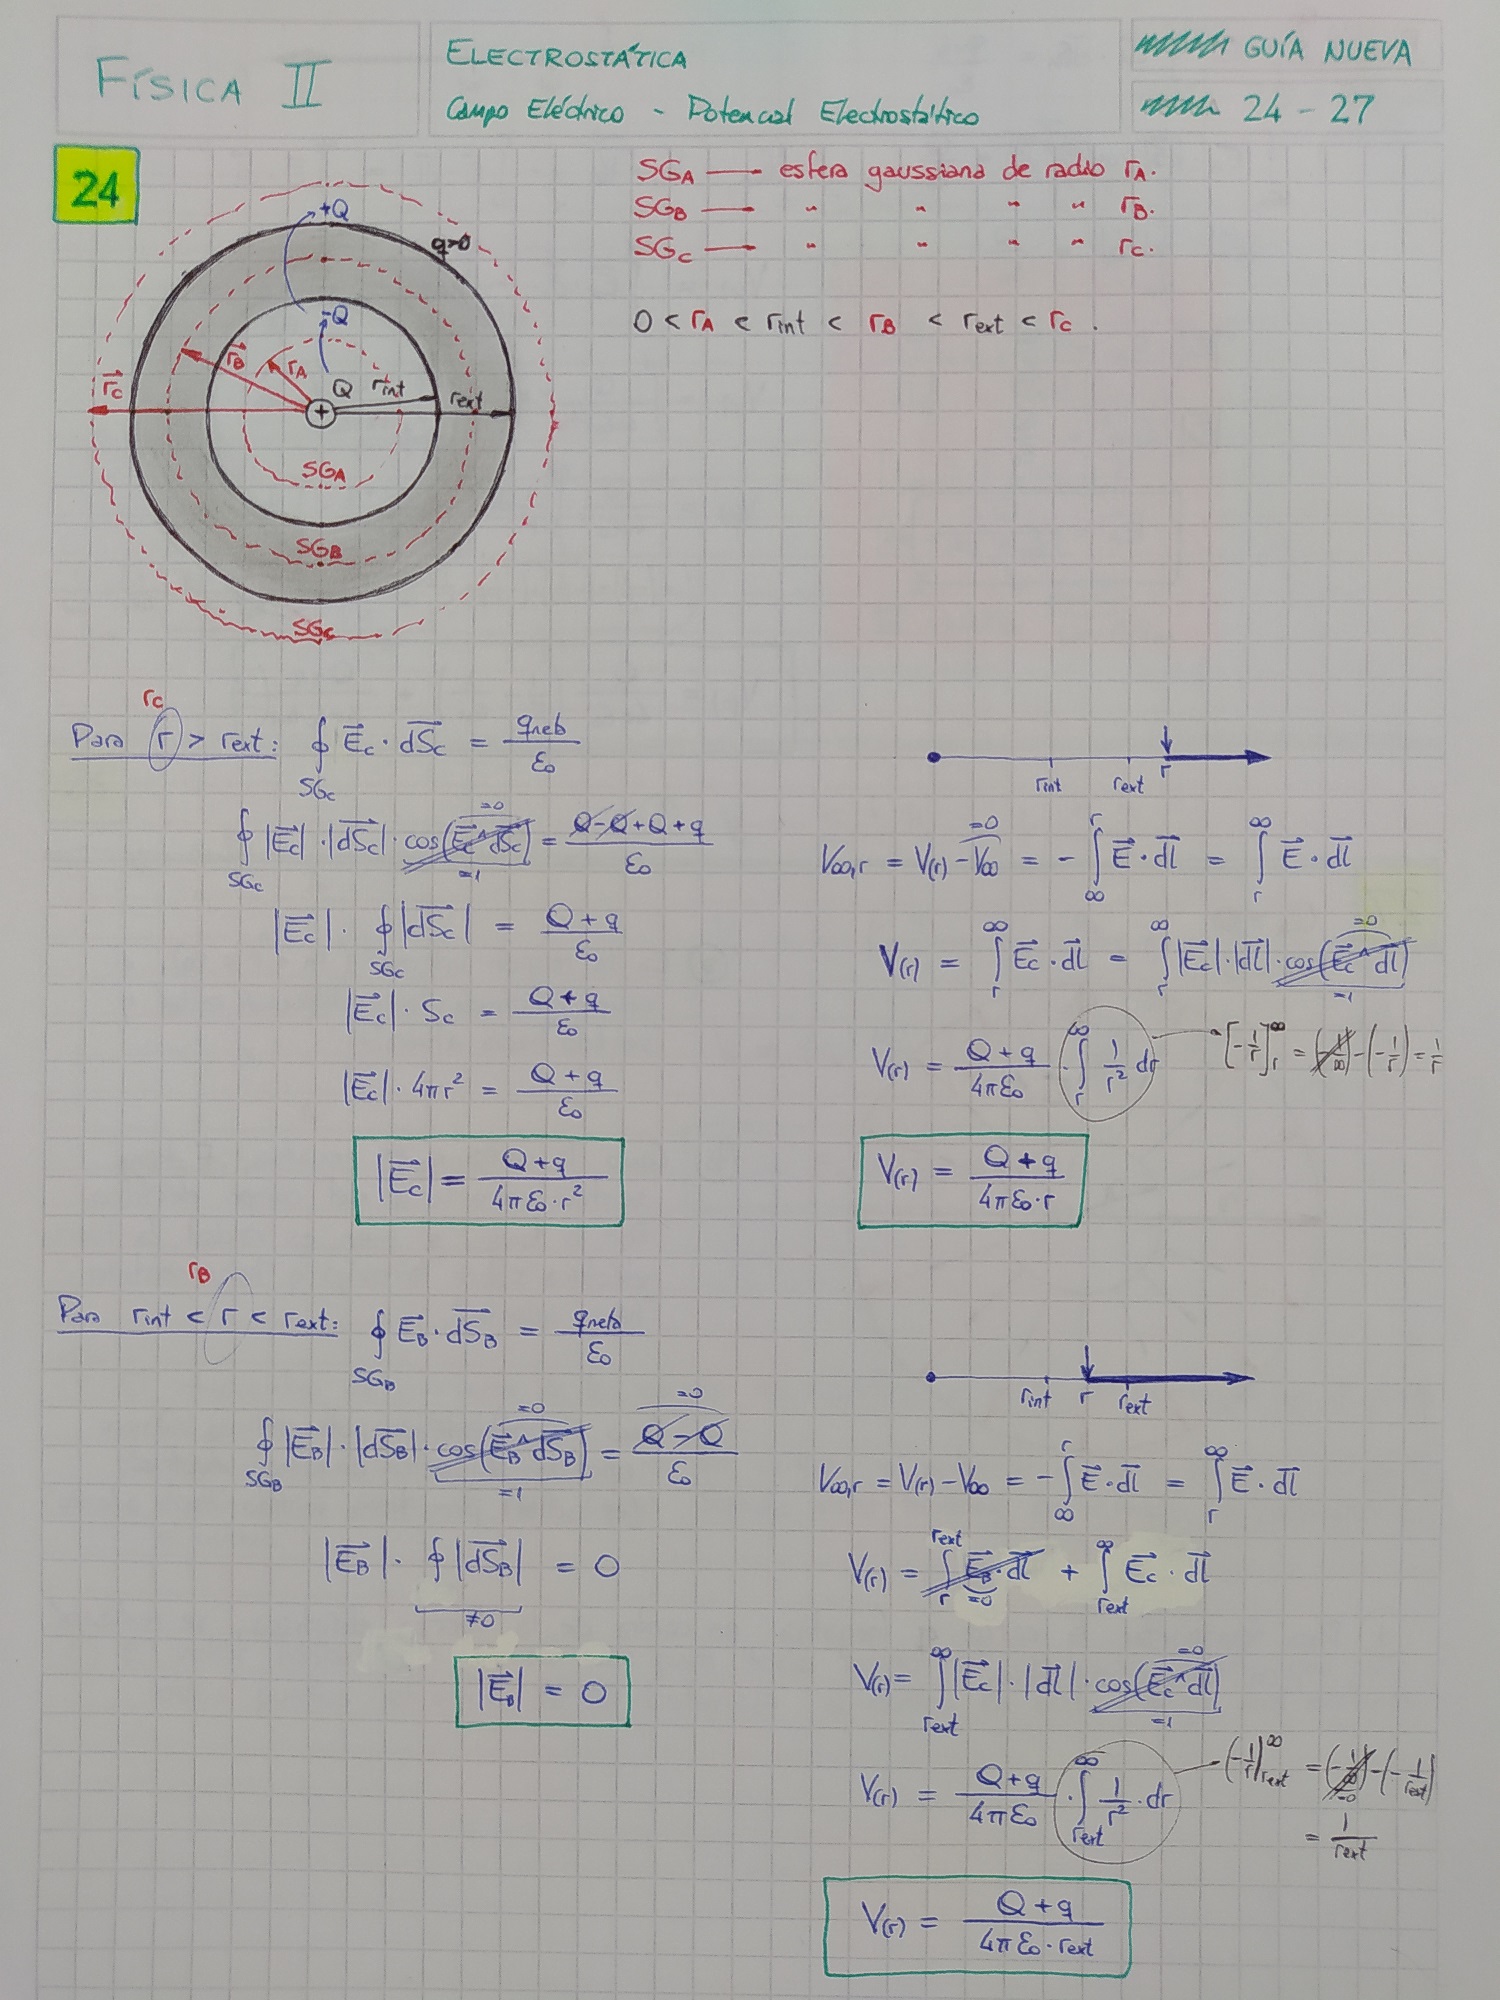 FÍSICA II
ELECTROSTÁTICA
Campo Eléctrico - Potencial Electrostático
GUÍA NUEVA
24 - 27
24
SG_A — esfera gaussiana de radio r_A.
SG_B — " " " " r_B.
SG_C — " " " " r_C.
0 < r_A < r_int < r_B < r_ext < r_C .
+Q
q>0
-Q
r_B
r_A
Q
r_int
r_C
r_ext
+
SG_A
SG_B
SG_C
r_C
Para r > r_ext: ∮_SG_C E_C · dS_C = q_neta / ε₀
∮_SG_C |E_C| · |dS_C| · cos(E_C ^ dS_C) = (Q - Q + Q + q) / ε₀
=0
=1
|E_C| · ∮_SG_C |dS_C| = (Q + q) / ε₀
|E_C| · S_C = (Q + q) / ε₀
|E_C| · 4πr² = (Q + q) / ε₀
|E_C| = (Q + q) / (4πε₀ · r²)
r_int r_ext r
V_∞,r = V(r) - V_∞ = - ∫_∞^r E · dl = ∫_r^∞ E · dl
=0
V(r) = ∫_r^∞ E_C · dl = ∫_r^∞ |E_C| · |dl| · cos(E_C ^ dl)
=0
=1
V(r) = (Q + q) / (4πε₀) · ∫_r^∞ 1/r² dr
[-1/r]_r^∞ = (-1/∞) - (-1/r) = 1/r
V(r) = (Q + q) / (4πε₀ · r)
r_B
Para r_int < r < r_ext: ∮_SG_B E_B · dS_B = q_neta / ε₀
∮_SG_B |E_B| · |dS_B| · cos(E_B ^ dS_B) = (Q - Q) / ε₀
=0
=1
=0
|E_B| · ∮ |dS_B| = 0
≠0
|E_B| = 0
r_int r r_ext
V_∞,r = V(r) - V_∞ = - ∫_∞^r E · dl = ∫_r^∞ E · dl
V(r) = ∫_r^r_ext E_B · dl + ∫_r_ext^∞ E_C · dl
=0
V(r) = ∫_r_ext^∞ |E_C| · |dl| · cos(E_C ^ dl)
=0
=1
V(r) = (Q + q) / (4πε₀) · ∫_r_ext^∞ 1/r² · dr
(-1/r)_r_ext^∞ = (-1/∞) - (-1/r_ext)
=0
= 1/r_ext
V(r) = (Q + q) / (4πε₀ · r_ext)